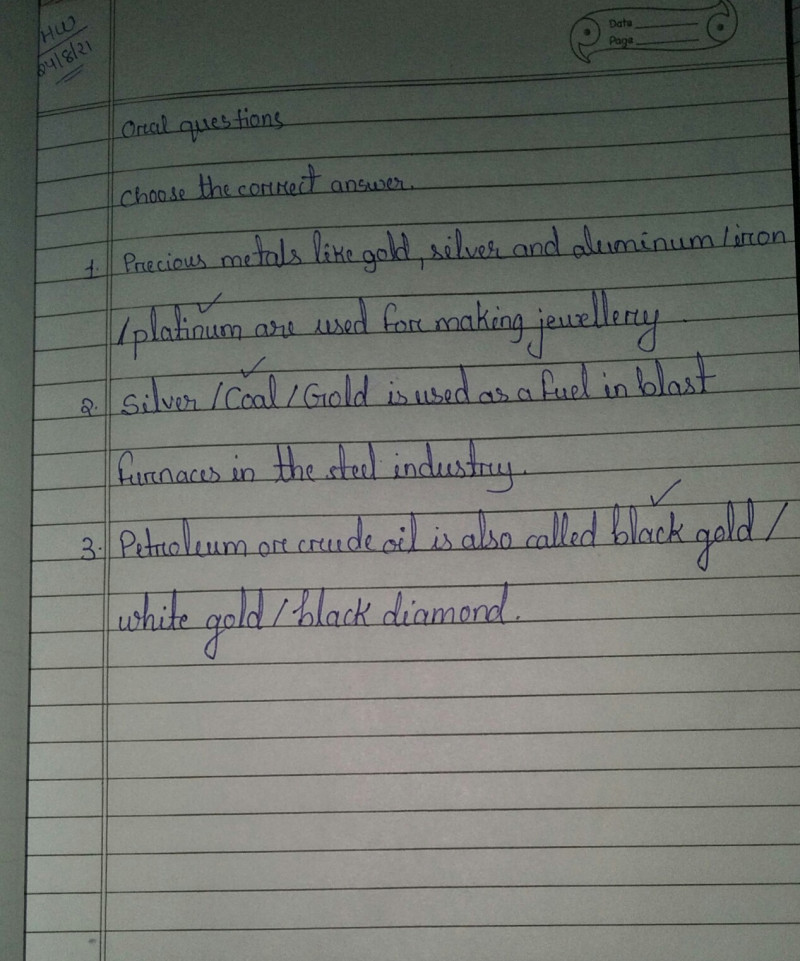 HW
24/8/21
Date
Page
Oral questions
Choose the correct answer.
1. Precious metals like gold, silver and aluminum / iron
/ platinum are used for making jewellery
2. Silver / Coal / Gold is used as a fuel in blast
furnaces in the steel industry.
3. Petroleum or crude oil is also called black gold /
white gold / black diamond.